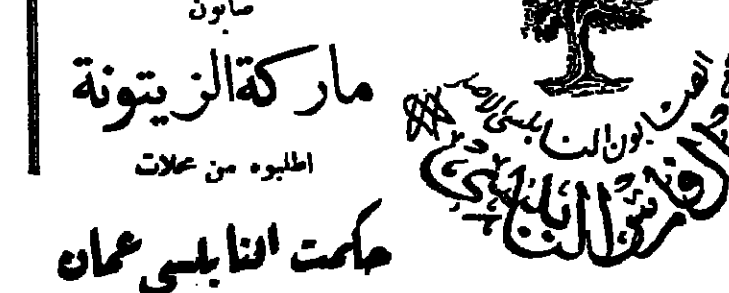 صابون
ماركة الزيتونة
اطلبوه من محلات
حكمت النابلسي عمان
الصابون النابلسي
النابلسي